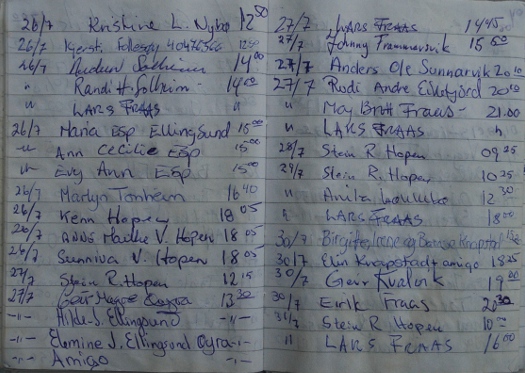 26/7 Kristine L. Nybø 12 50
26/7 Kjersti Follesøy 40476566
26/7 Solheim 14 00
" Randi H. Solheim 14 00
" LARS FRAAS "
26/7 Maria Esp Ellingsund 15 00
-"- Ann Cecilie Esp 15 00
-"- Evy Ann Esp 15 00
26/7 Martyn Tonheim 16 40
26/7 Kenn Hopen 18 05
26/7 V. Hopen 18 05
26/7 Sunniva V. Hopen 18 05
27/7 Stein R. Hopen 12 15
27/7 Geir 13 30
-"- Hilde J. Ellingsund -"-
-"- J. Ellingsund Oyra -"-
-"- Amigo -"-
27/7 LARS FRAAS 14 45
27/7 Johnny
27/7 Anders Ole Sunnarvik 20 10
27/7 Rudi Andre 20 10
" May Britt Fraas - 21.00
" LARS FRAAS "
28/7 Stein R. Hopen 09 25
29/7 Stein R. Hopen 10 25
" Anita 12 30
" LARS FRAAS 18 00
30/7
30/7 Elin Knapstad, amigo 18 25
30/7 Geir 19 00
30/7 Eirik Fraas 20 30
31/7 Stein R Hopen 10 00
" LARS FRAAS 16 00